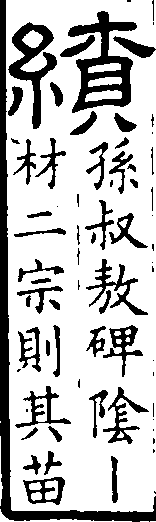 績
孫叔敖碑陰丨
材二宗則其苗